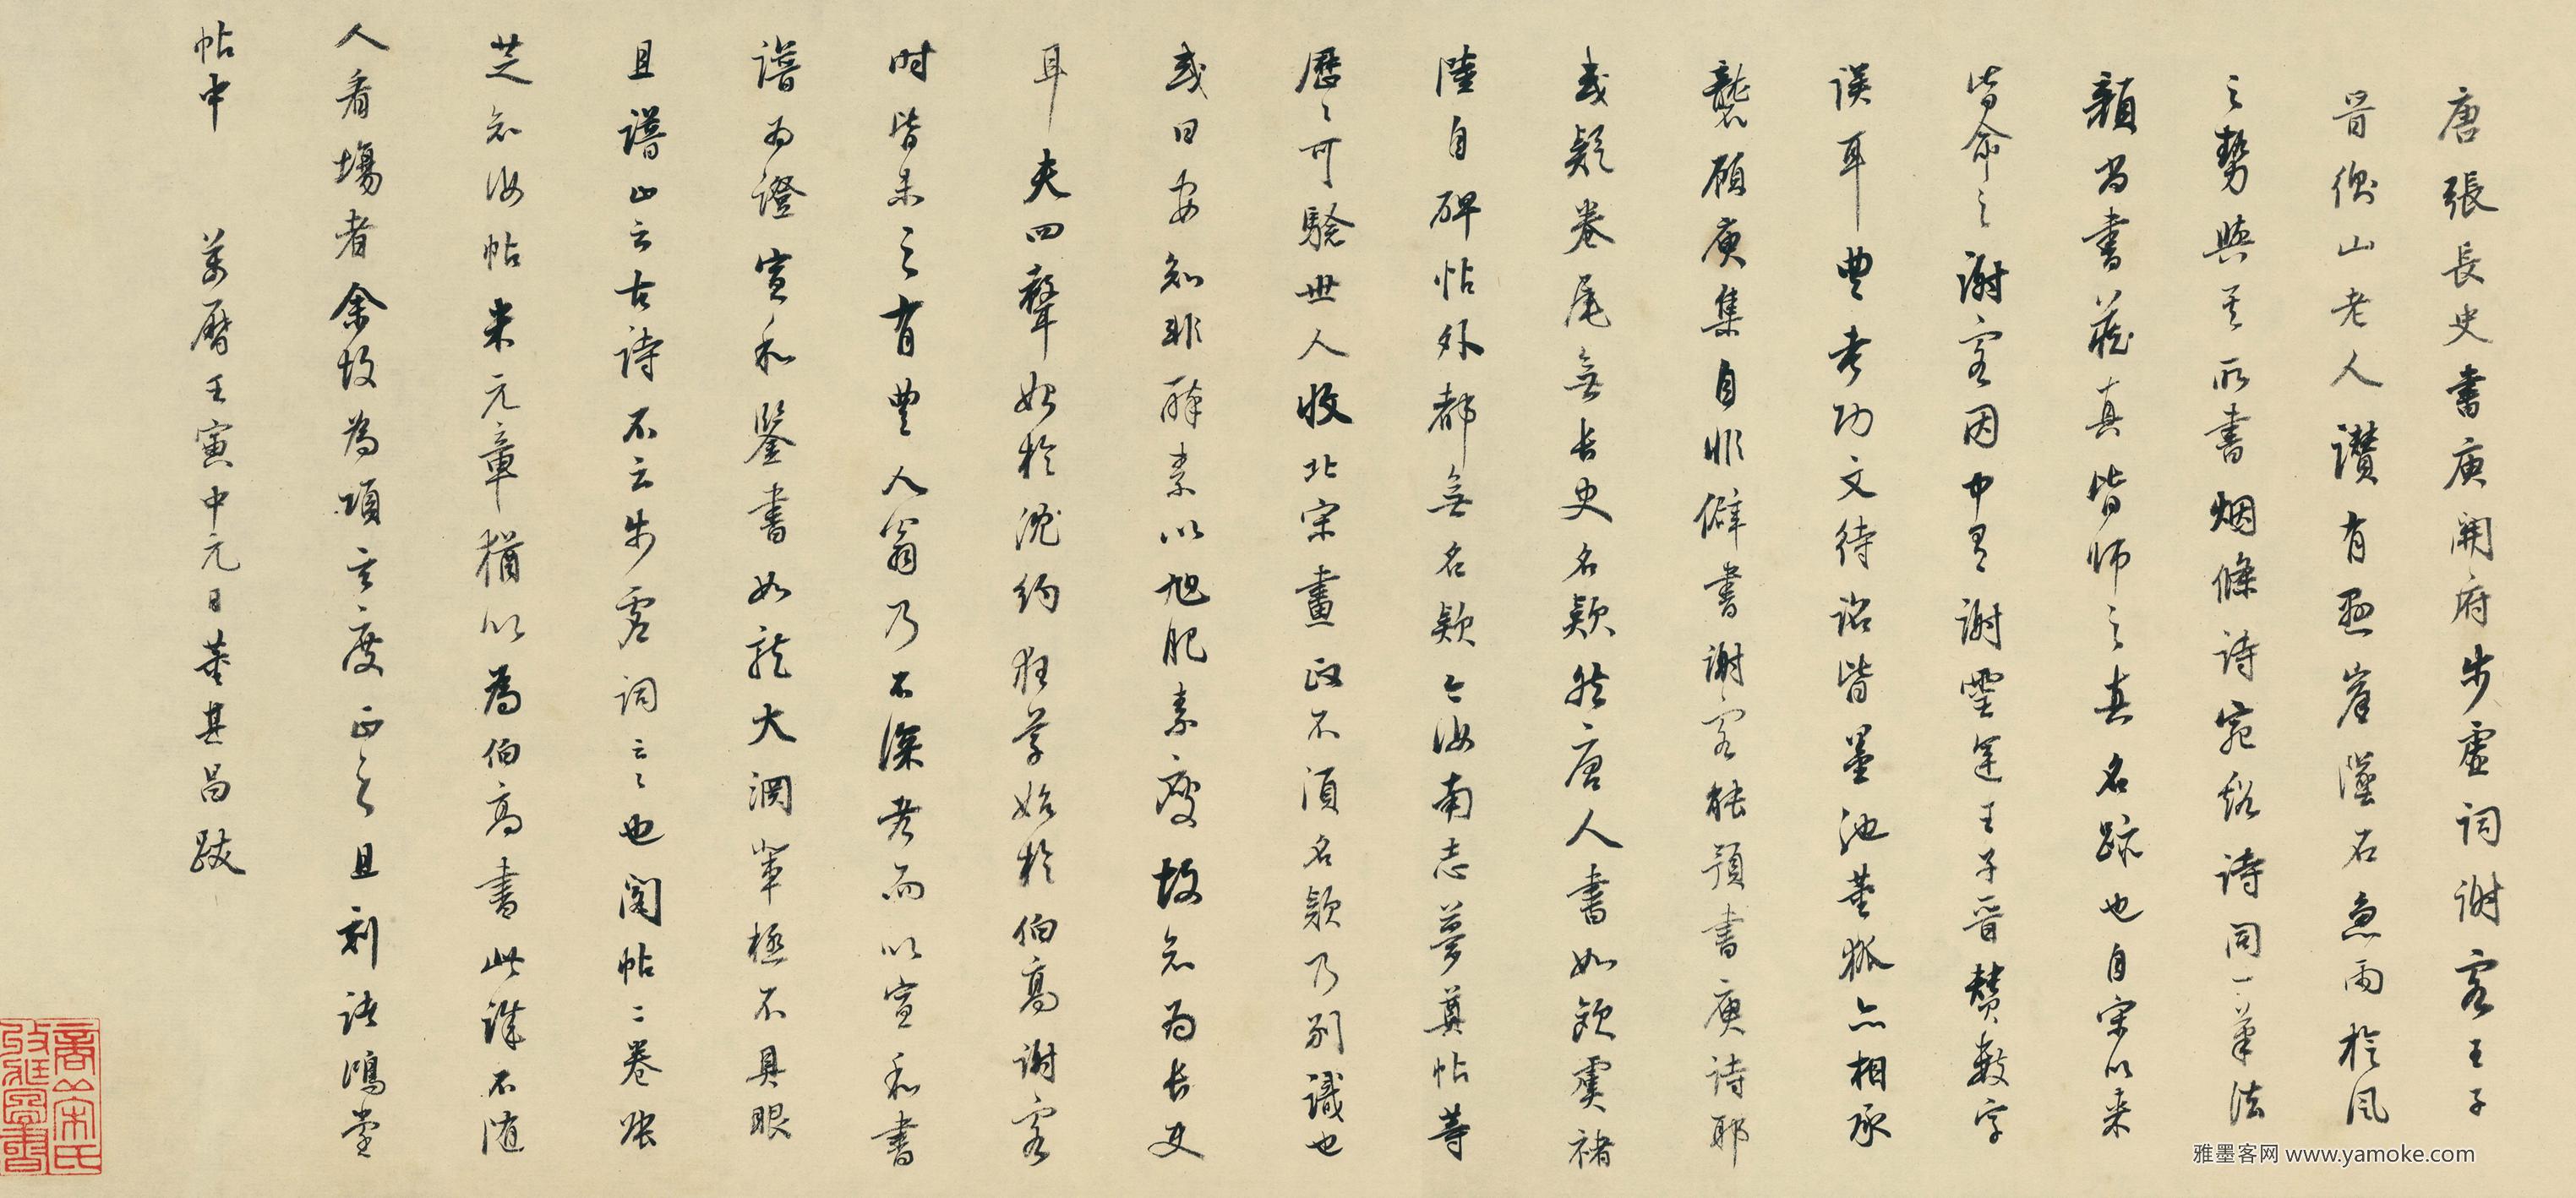 唐張長史書庾開府步虛詞謝客王子
晉衡山老人讚有懸崖墜石急雨旋風
之勢與其所書烟條詩宛谿詩同一筆法
顏尚書藏真皆師之真名跡也自宋以來
皆命之謝客因中有謝靈運王子晉贊數字
誤耳豐考功文待詔皆墨池董狐亦相承
襲顧庾集自非僻書謝客能預書庾詩耶
或疑卷尾無長史名款然唐人書如歐虞褚
陸自碑帖外都無名款今汝南志夢奠帖等
歷歷可驗世人收北宋畫政不須名款乃別識也
或曰安知非醉素以旭肥素瘦故知為長史
耳夫四聲始於沈約狂草始於伯高謝客
時皆未之有豐人翁乃不深考而以宣和書
譜為證宣和鑒書如龍大淵輩極不具眼
且譜止云古詩不云步虛詞云云也閣帖二卷張
芝知汝帖米元章猶以為伯高書此誰不隨
人看場者余故為項玄度正之且刻諸鴻堂
帖中 萬曆壬寅中元日董其昌跋
雅墨客网 www.yamoke.com